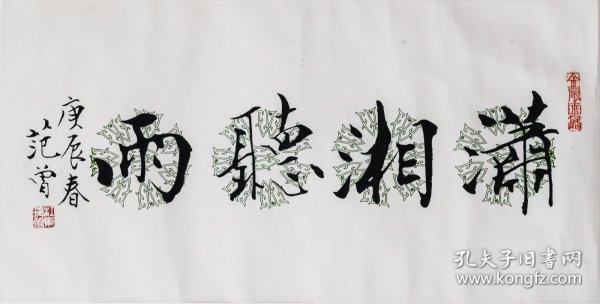 瀟湘聽雨
庚辰春
范曾
孔夫子旧书网
www.kongfz.com